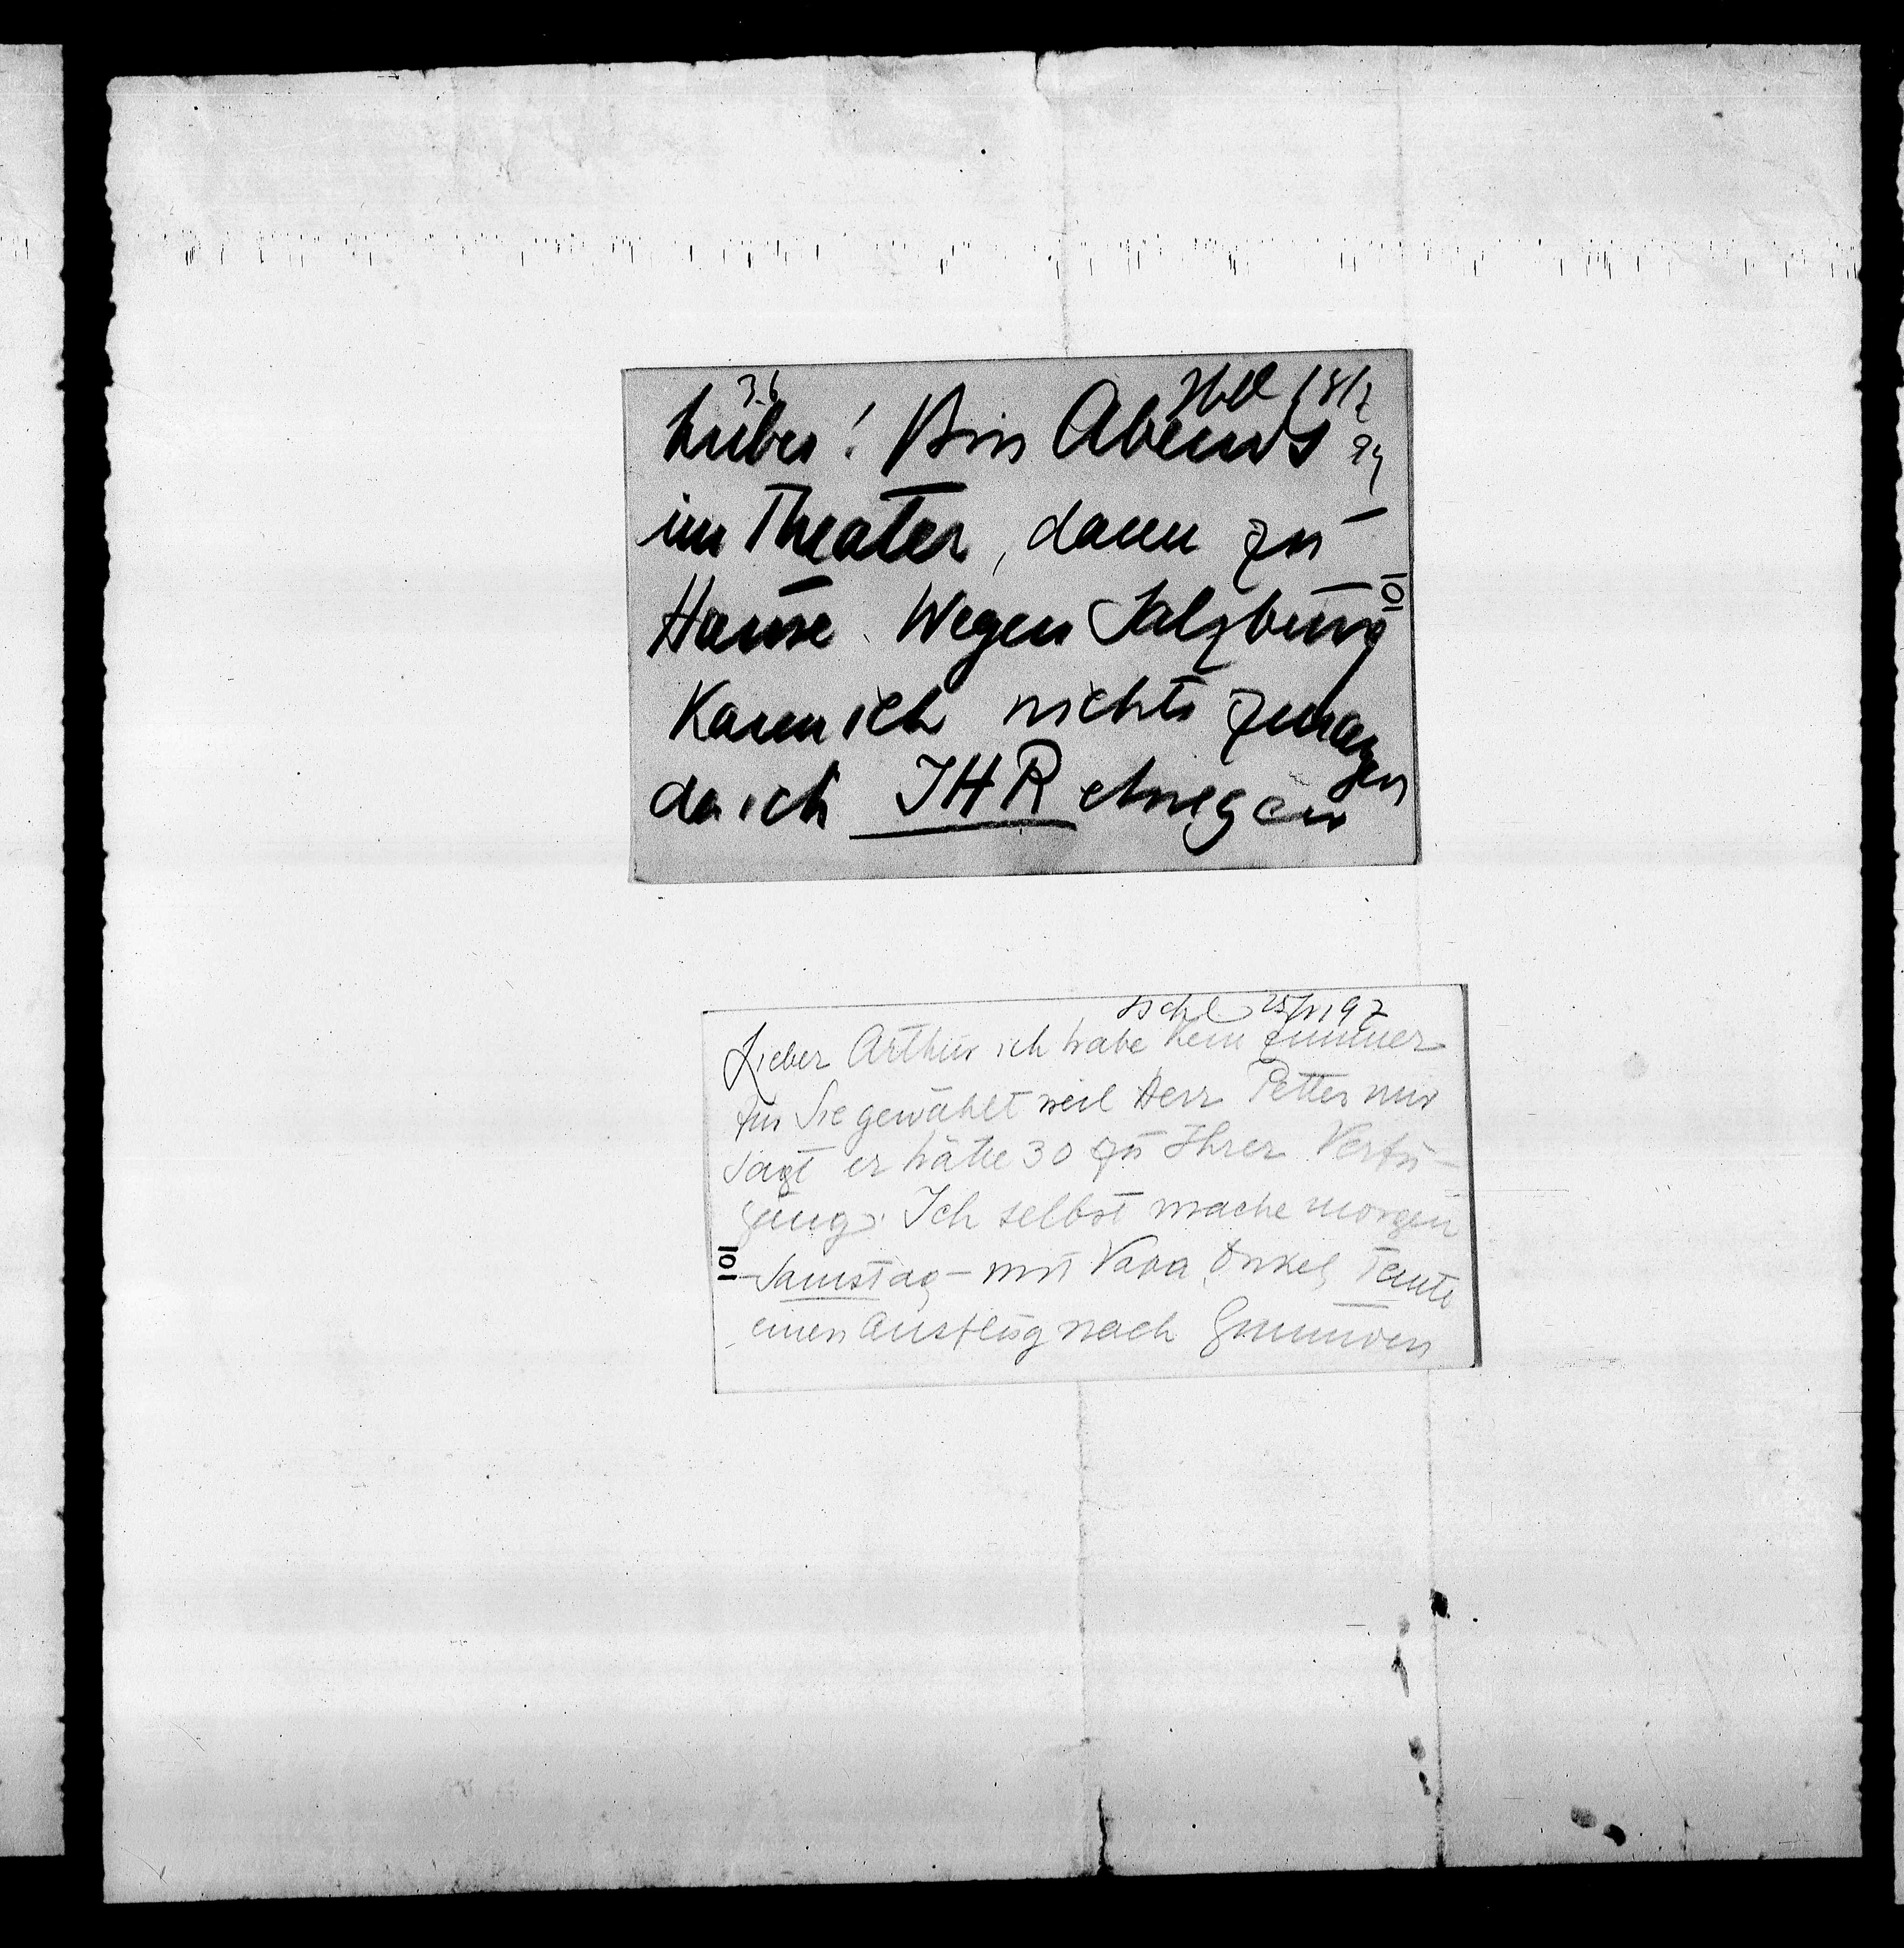 36
Ischl 18/7
94
Lieber! Bin Abends
im Theater, dann zu
Hause. Wegen Salzburg
kann ich nichts zusagen
da ich IHR etwegen
101
Ischl 25/VI 97
Lieber Arthur ich habe kein Zimmer
für Sie gewählt weil Herr Petter mir
sagt er hätte 30 zu Ihrer Verfü-
gung. Ich selbst mache morgen
– Samstag – mit Papa, Onkel, Tante
einen Ausflug nach Gmunden
101